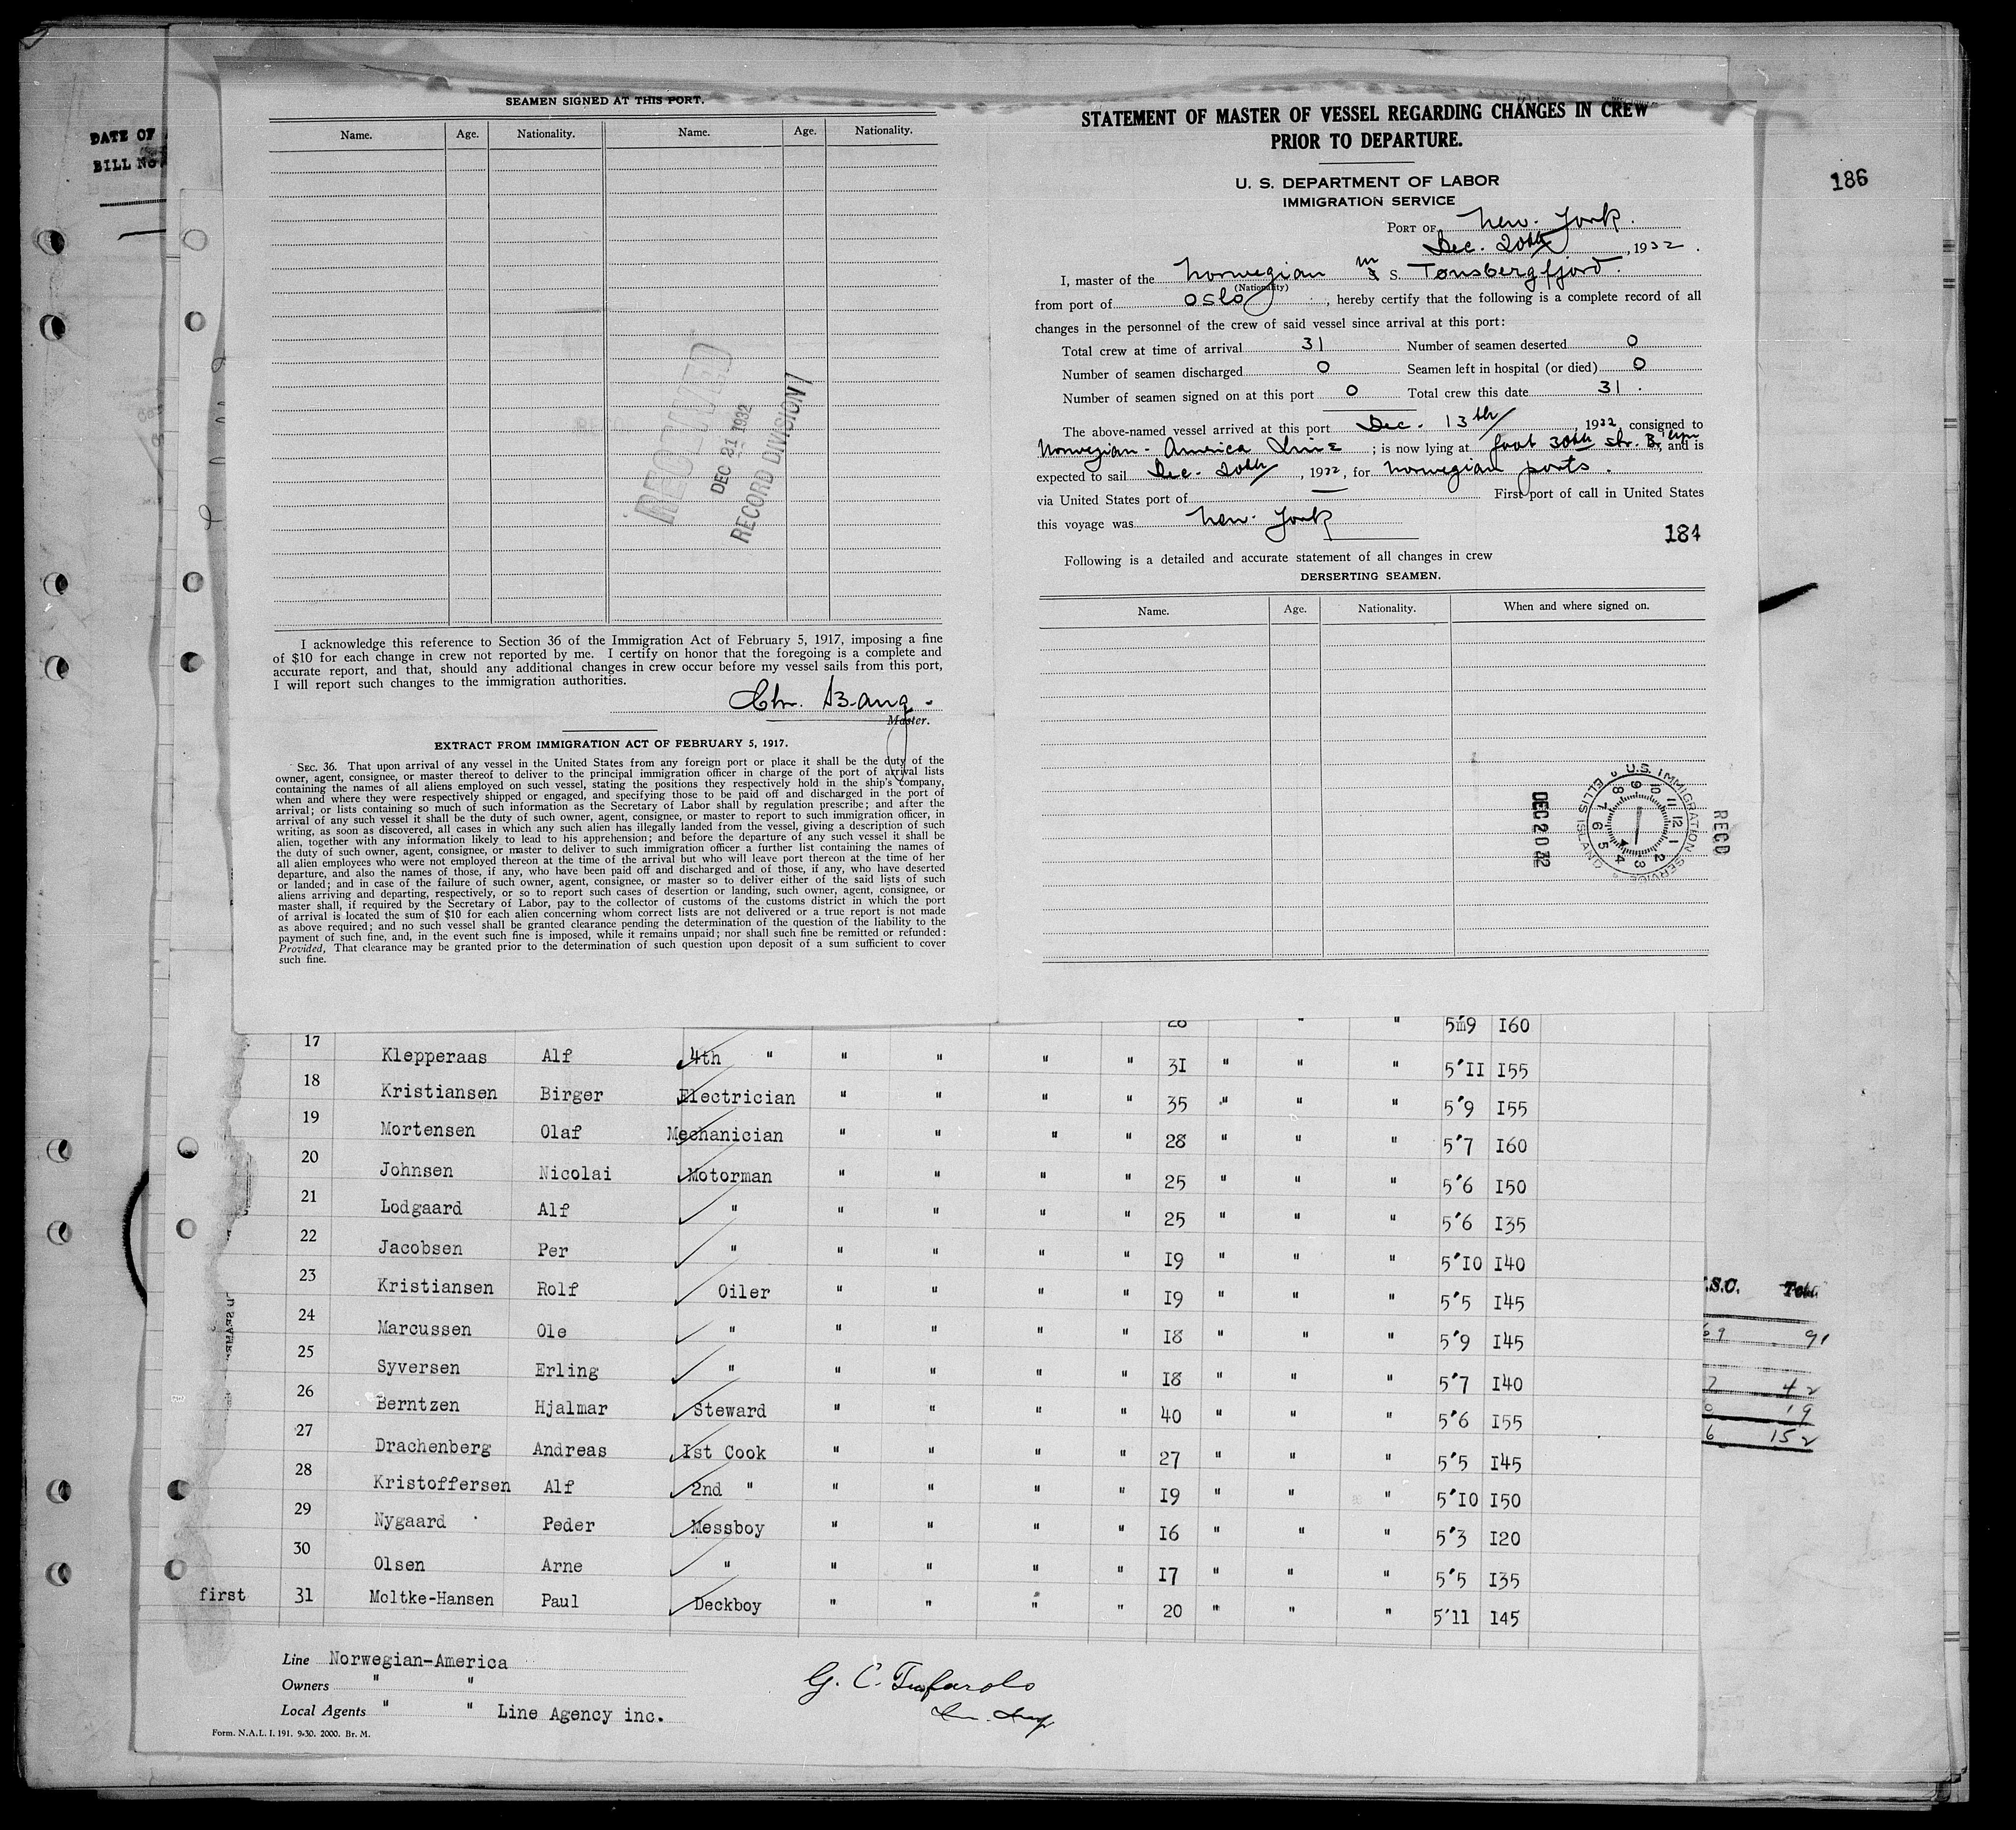 DATE OF
BILL No
186
SEAMEN SIGNED AT THIS PORT.
Name. Age. Nationality. Name. Age. Nationality.
RECEIVED
DEC 21 1932
RECORD DIVISION
I acknowledge this reference to Section 36 of the Immigration Act of February 5, 1917, imposing a fine
of $10 for each change in crew not reported by me. I certify on honor that the foregoing is a complete and
accurate report, and that, should any additional changes in crew occur before my vessel sails from this port,
I will report such changes to the immigration authorities.
Chr. Bang.
Master.
EXTRACT FROM IMMIGRATION ACT OF FEBRUARY 5, 1917.
SEC. 36. That upon arrival of any vessel in the United States from any foreign port or place it shall be the duty of the
owner, agent, consignee, or master thereof to deliver to the principal immigration officer in charge of the port of arrival lists
containing the names of all aliens employed on such vessel, stating the positions they respectively hold in the ship's company,
when and where they were respectively shipped or engaged, and specifying those to be paid off and discharged in the port of
arrival; or lists containing so much of such information as the Secretary of Labor shall by regulation prescribe; and after the
arrival of any such vessel it shall be the duty of such owner, agent, consignee, or master to report to such immigration officer, in
writing, as soon as discovered, all cases in which any such alien has illegally landed from the vessel, giving a description of such
alien, together with any information likely to lead to his apprehension; and before the departure of any such vessel it shall be
the duty of such owner, agent, consignee, or master to deliver to such immigration officer a further list containing the names of
all alien employees who were not employed thereon at the time of the arrival but who will leave port thereon at the time of her
departure, and also the names of those, if any, who have been paid off and discharged and of those, if any, who have deserted
or landed; and in case of the failure of such owner, agent, consignee, or master so to deliver either of the said lists of such
aliens arriving and departing, respectively, or so to report such cases of desertion or landing, such owner, agent, consignee, or
master shall, if required by the Secretary of Labor, pay to the collector of customs of the customs district in which the port
of arrival is located the sum of $10 for each alien concerning whom correct lists are not delivered or a true report is not made
as above required; and no such vessel shall be granted clearance pending the determination of the question of the liability to the
payment of such fine, and, in the event such fine is imposed, while it remains unpaid; nor shall such fine be remitted or refunded:
Provided, That clearance may be granted prior to the determination of such question upon deposit of a sum sufficient to cover
such fine.
STATEMENT OF MASTER OF VESSEL REGARDING CHANGES IN CREW
PRIOR TO DEPARTURE.
U. S. DEPARTMENT OF LABOR
IMMIGRATION SERVICE
PORT OF New-York.
Dec. 20th, 1932.
I, master of the Norwegian m S. Tønsbergfjord.
(Nationality)
from port of Oslo, hereby certify that the following is a complete record of all
changes in the personnel of the crew of said vessel since arrival at this port:
Total crew at time of arrival 31 Number of seamen deserted 0
Number of seamen discharged 0 Seamen left in hospital (or died) 0
Number of seamen signed on at this port 0 Total crew this date 31.
The above-named vessel arrived at this port Dec. 13th, 1932, consigned to
Norwegian-America Line; is now lying at foot 30th str. B'lyn, and is
expected to sail Dec. 20th, 1932, for Norwegian ports.
via United States port of — First port of call in United States
this voyage was New-York
184
Following is a detailed and accurate statement of all changes in crew
DERSERTING SEAMEN.
Name. Age. Nationality. When and where signed on.
DEC 20 32
U.S. IMMIGRATION SERVICE ELLIS ISLAND
1 2 3 4 5 6 7 8 9 10 11 12
RECD
5"9 I60
17 Klepperaas Alf 4th " " " " " 31 " " " 5'II I55
18 Kristiansen Birger Electrician " " " " 35 " " " 5'9 I55
19 Mortensen Olaf Mechanician " " " " 28 " " " 5'7 I60
20 Johnsen Nicolai Motorman " " " " 25 " " " 5'6 I50
21 Lodgaard Alf " " " " " 25 " " " 5'6 I35
22 Jacobsen Per " " " " " I9 " " " 5'IO I40
23 Kristiansen Rolf Oiler " " " " I9 " " " 5'5 I45
24 Marcussen Ole " " " " " I8 " " " 5'9 I45
25 Syversen Erling " " " " " I8 " " " 5'7 I40
26 Berntzen Hjalmar Steward " " " " 40 " " " 5'6 I55
27 Drachenberg Andreas Ist Cook " " " " 27 " " " 5'5 I45
28 Kristoffersen Alf 2nd " " " " " I9 " " " 5'IO I50
29 Nygaard Peder Messboy " " " " I6 " " " 5'3 I20
30 Olsen Arne " " " " " I7 " " " 5'5 I35
first 31 Moltke-Hansen Paul Deckboy " " " " 20 " " " 5'11 145
.S.C. Total
69 91
7 42
0 19
6 152
Line Norwegian-America
Owners " "
Local Agents " " Line Agency inc.
Form. N.A.L. I. 191. 9-30. 2000. Br. M.
G. C. Tufarolo
Im. Insp